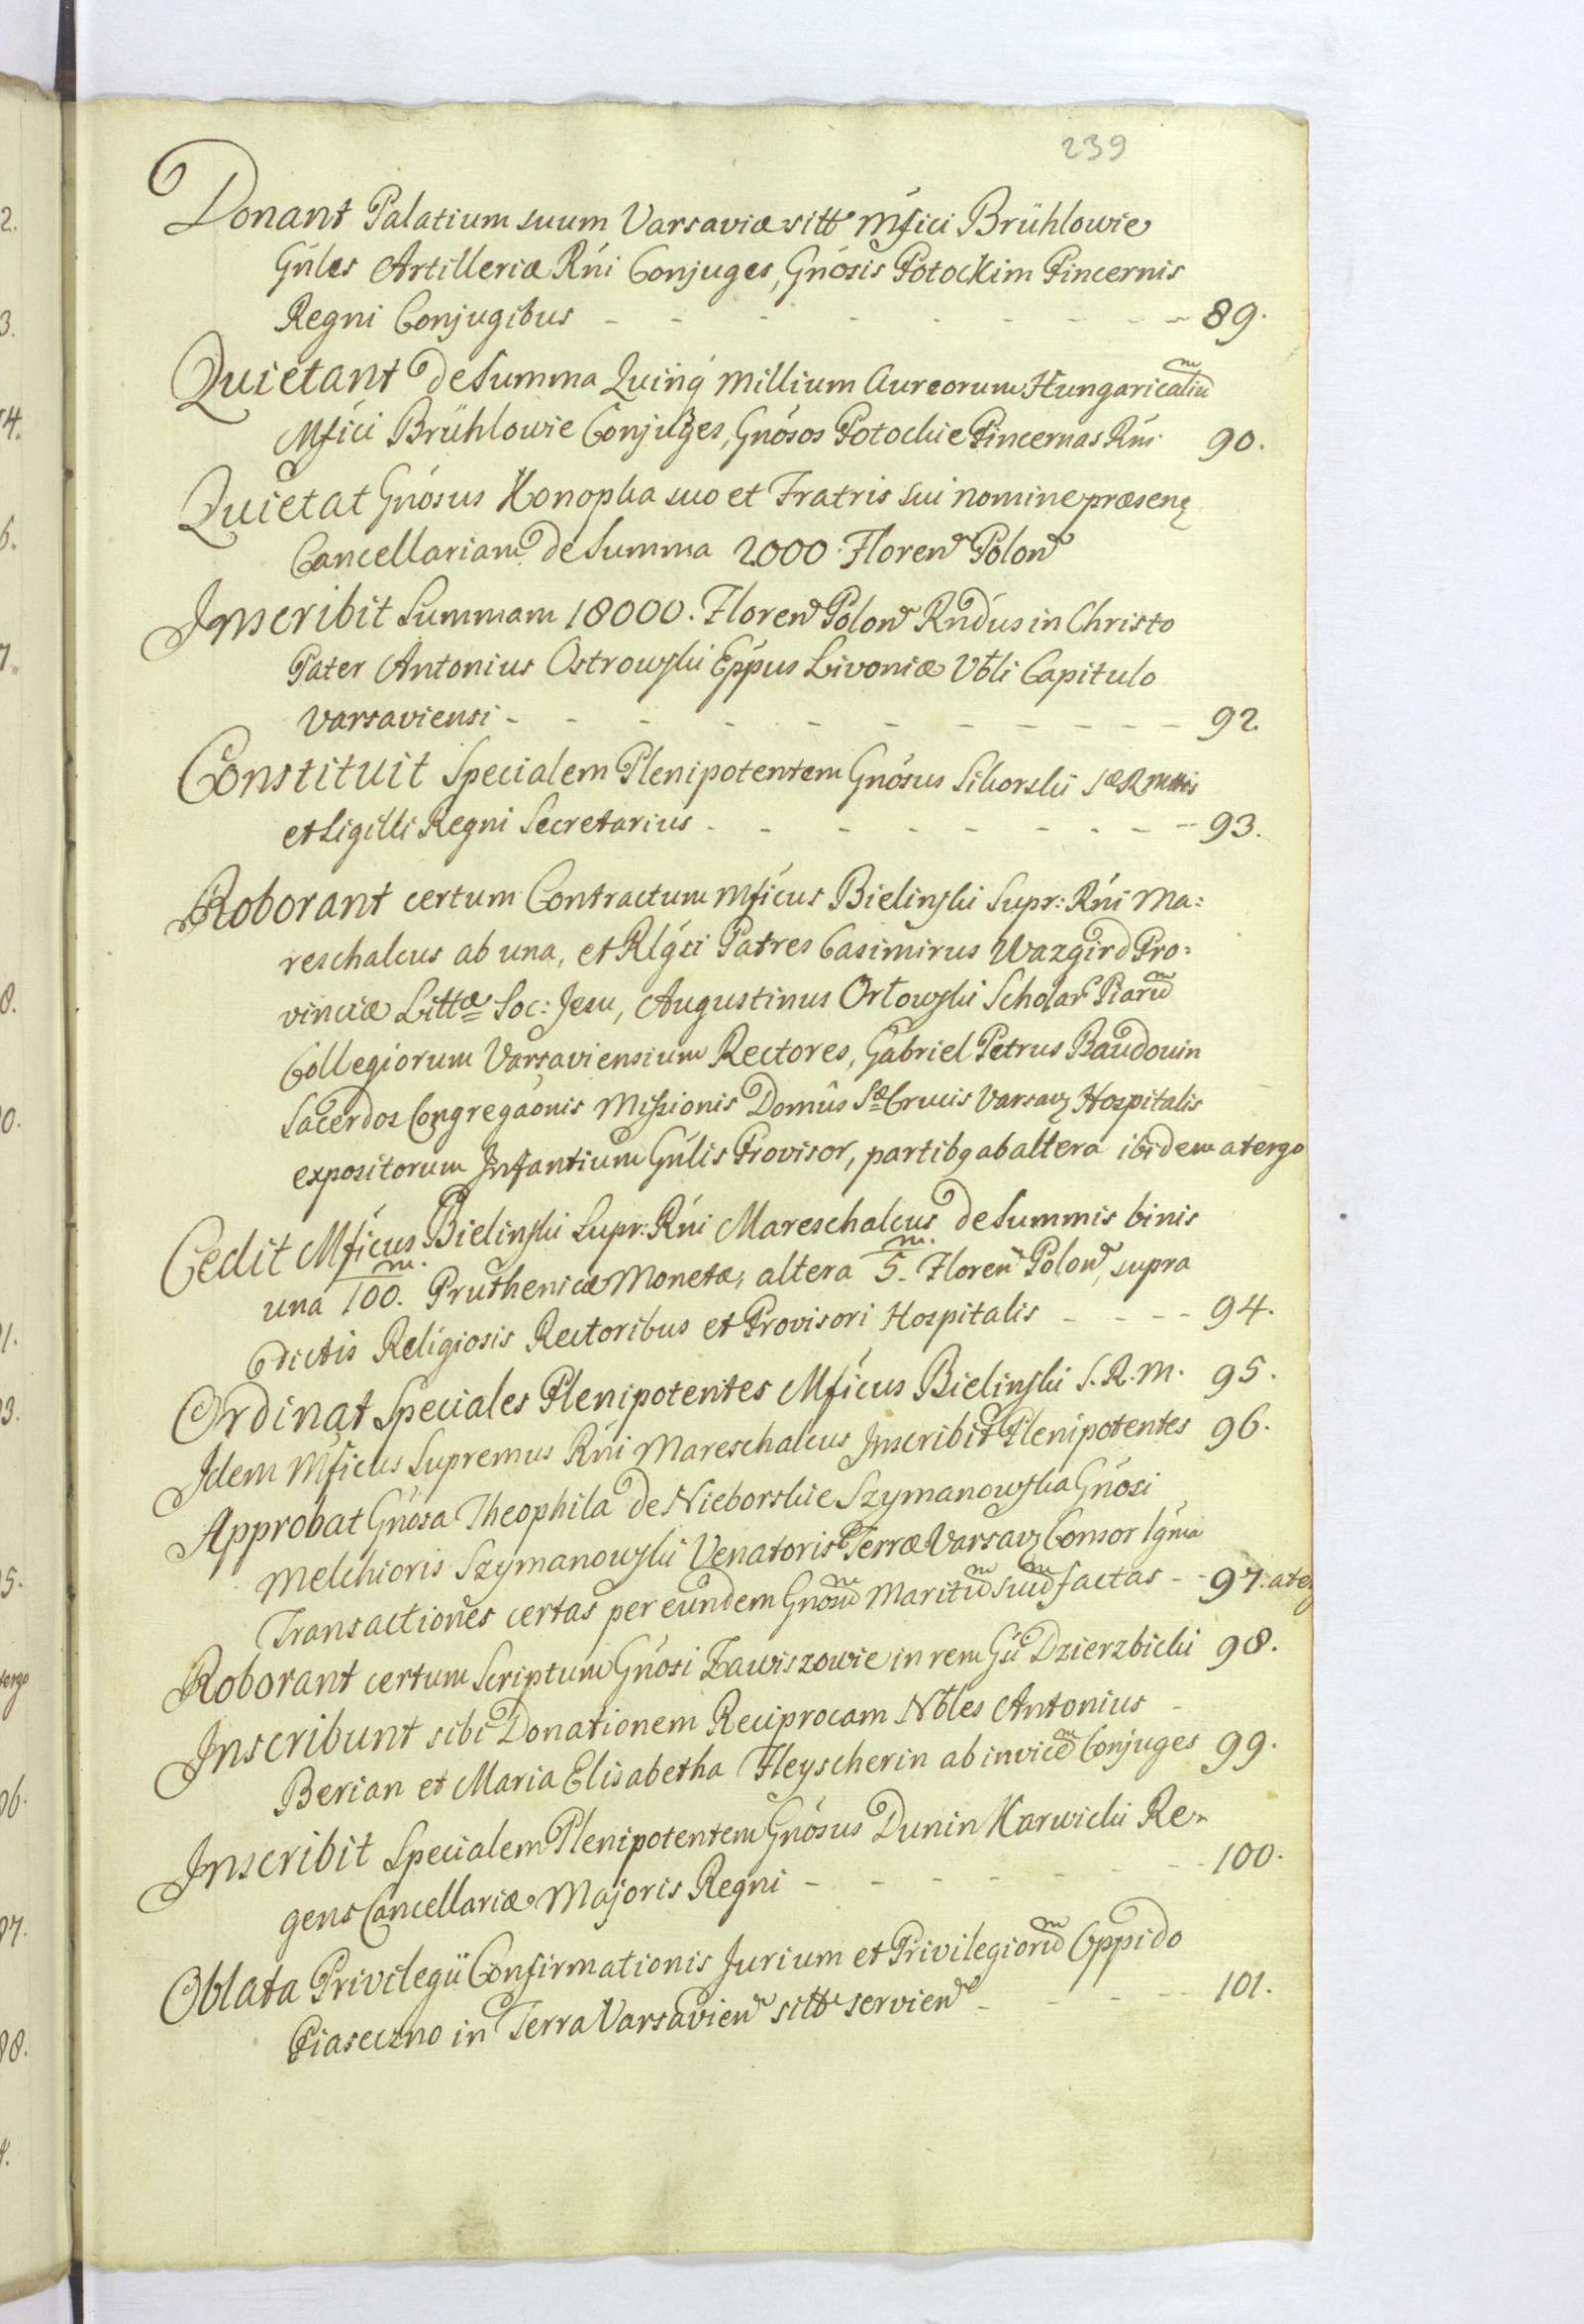 239
Donant Palatium suum Varsaviæ sitt Mfici Brühlowie
Gnles Artilleriæ Rni Conjuges, Gnosis Potockim Pincernis
Regni Conjugibus - - - - - - - - - - 89.
Quietant de Summa Quinq millium Aureorum Hungaricaliu
Mfici Brühlowie Conjuges, Gnosos Potockie Pincernas Rni 90.
Quietat Gnosus Konopka suo et Fratris sui nomine præsen
Cancellariam de Summa 2000. Floren Polon
Inscribit Summam 18000. Floren Polon Rndus in Christo
Pater Antonius Ostrowski Eppus Livoniæ Vbli Capitulo
Varsaviensi - - - - - - - - - - 92.
Constituit Specialem Plenipotentem Gnosus Sikorski Sæ R Mttis
et Sigilli Regni Secretarius - - - - - - - - 93.
Roborant certum Contractum Mficus Bielinski Supr: Rni Ma:
reschalcus ab una, et Rlgsi Patres Casimirus Wazgird Pro:
vinciæ Littæ Soc: Jesu, Augustinus Orłowski Scholar Piaru
Collegiorum Varsaviensium Rectores, Gabriel Petrus Baudouin
Sacerdos Congregaonis Missionis Domûs Sæ Crucis Varsav Hospitalis
expositorum Infantium Gnlis Provisor, partibq ab altera ibidem a tergo
Cedit Mficus Bielinski Supr: Rni Mareschalcus de Summis binis
una 100. m. Pruthenicæ Monetæ, altera 5. m. Floren Polon, supra
dictis Religiosis Rectoribus et Provisori Hospitalis - - - - 94.
Ordinat Speciales Plenipotentes Mficus Bielinski S. R. M. 95.
Idem Mficus Supremus Rni Mareschalcus Inscribit Plenipotentes 96.
Approbat Gnosa Theophila de Nieborskie Szymanowska Gnosi
Melchioris Szymanowski Venatoris Terræ Varsav Consor
Transactiones certas per eundem Gnosu Maritu Suu factas - - 97. a
Roborant certum Scriptum Gnosi Zawiszowie in rem Gsi Dzierzbicki 98.
Inscribunt sibi Donationem Reciprocam Nbles Antonius -
Berian et Maria Elisabetha Fleyscherin ab invice Conjuges 99.
Inscribit Specialem Plenipotentem Gnosus Dunin Karwicki Re-
gens Cancellariæ Majoris Regni - - - - - - - 100.
Oblata Privilegii Confirmationis Jurium et Privilegioru Oppido
Piaseczno in Terra Varsavien sitt servien - - - - 101.